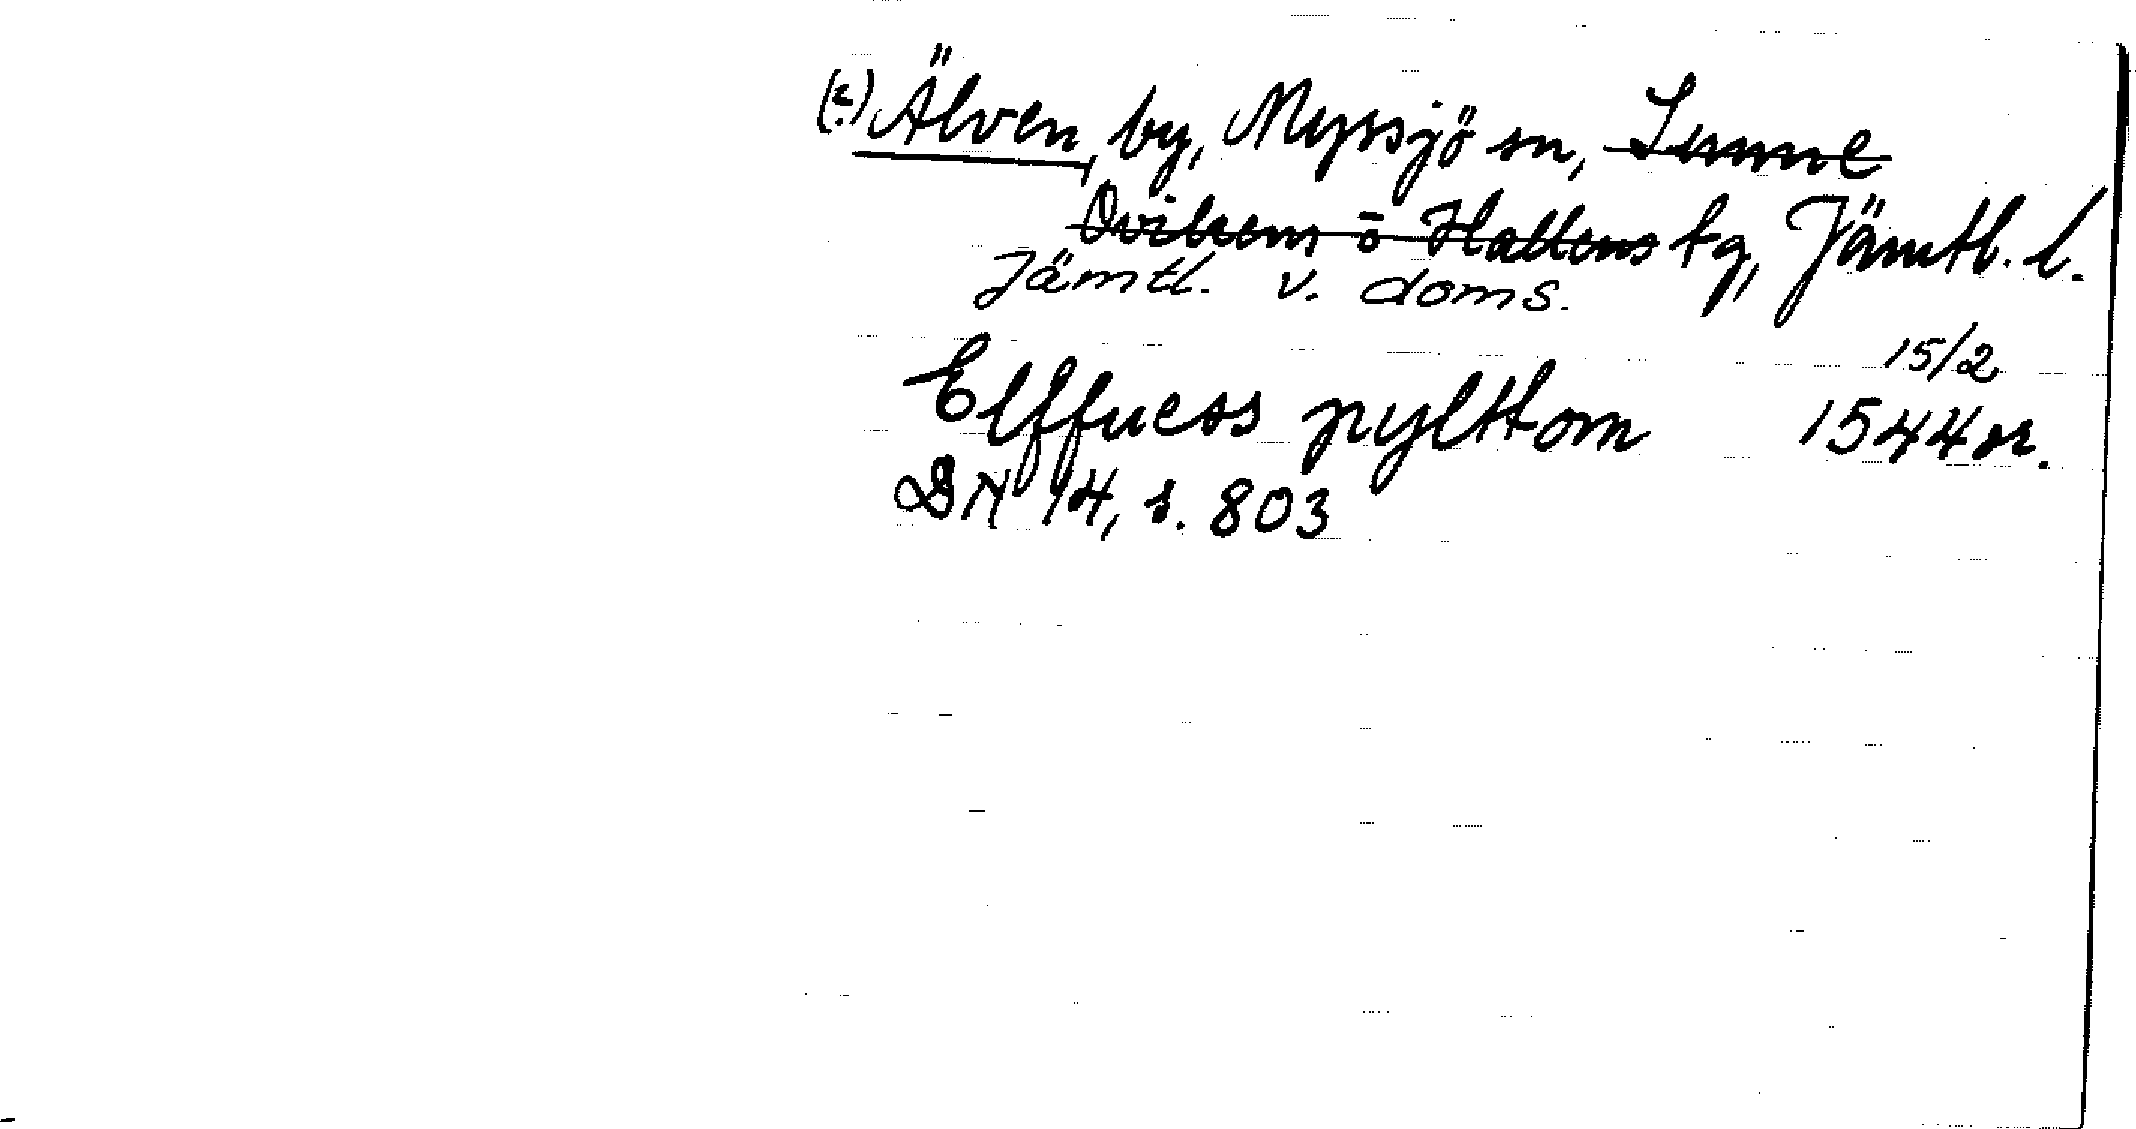 (?) Älven, by, Myssjö sn, Sunne
Ovikens o Hallens tg, Jämtl. l.
Jämtl. v. doms.
15/2
Elffuess pylttom 1544 or.
DN 14, s. 803